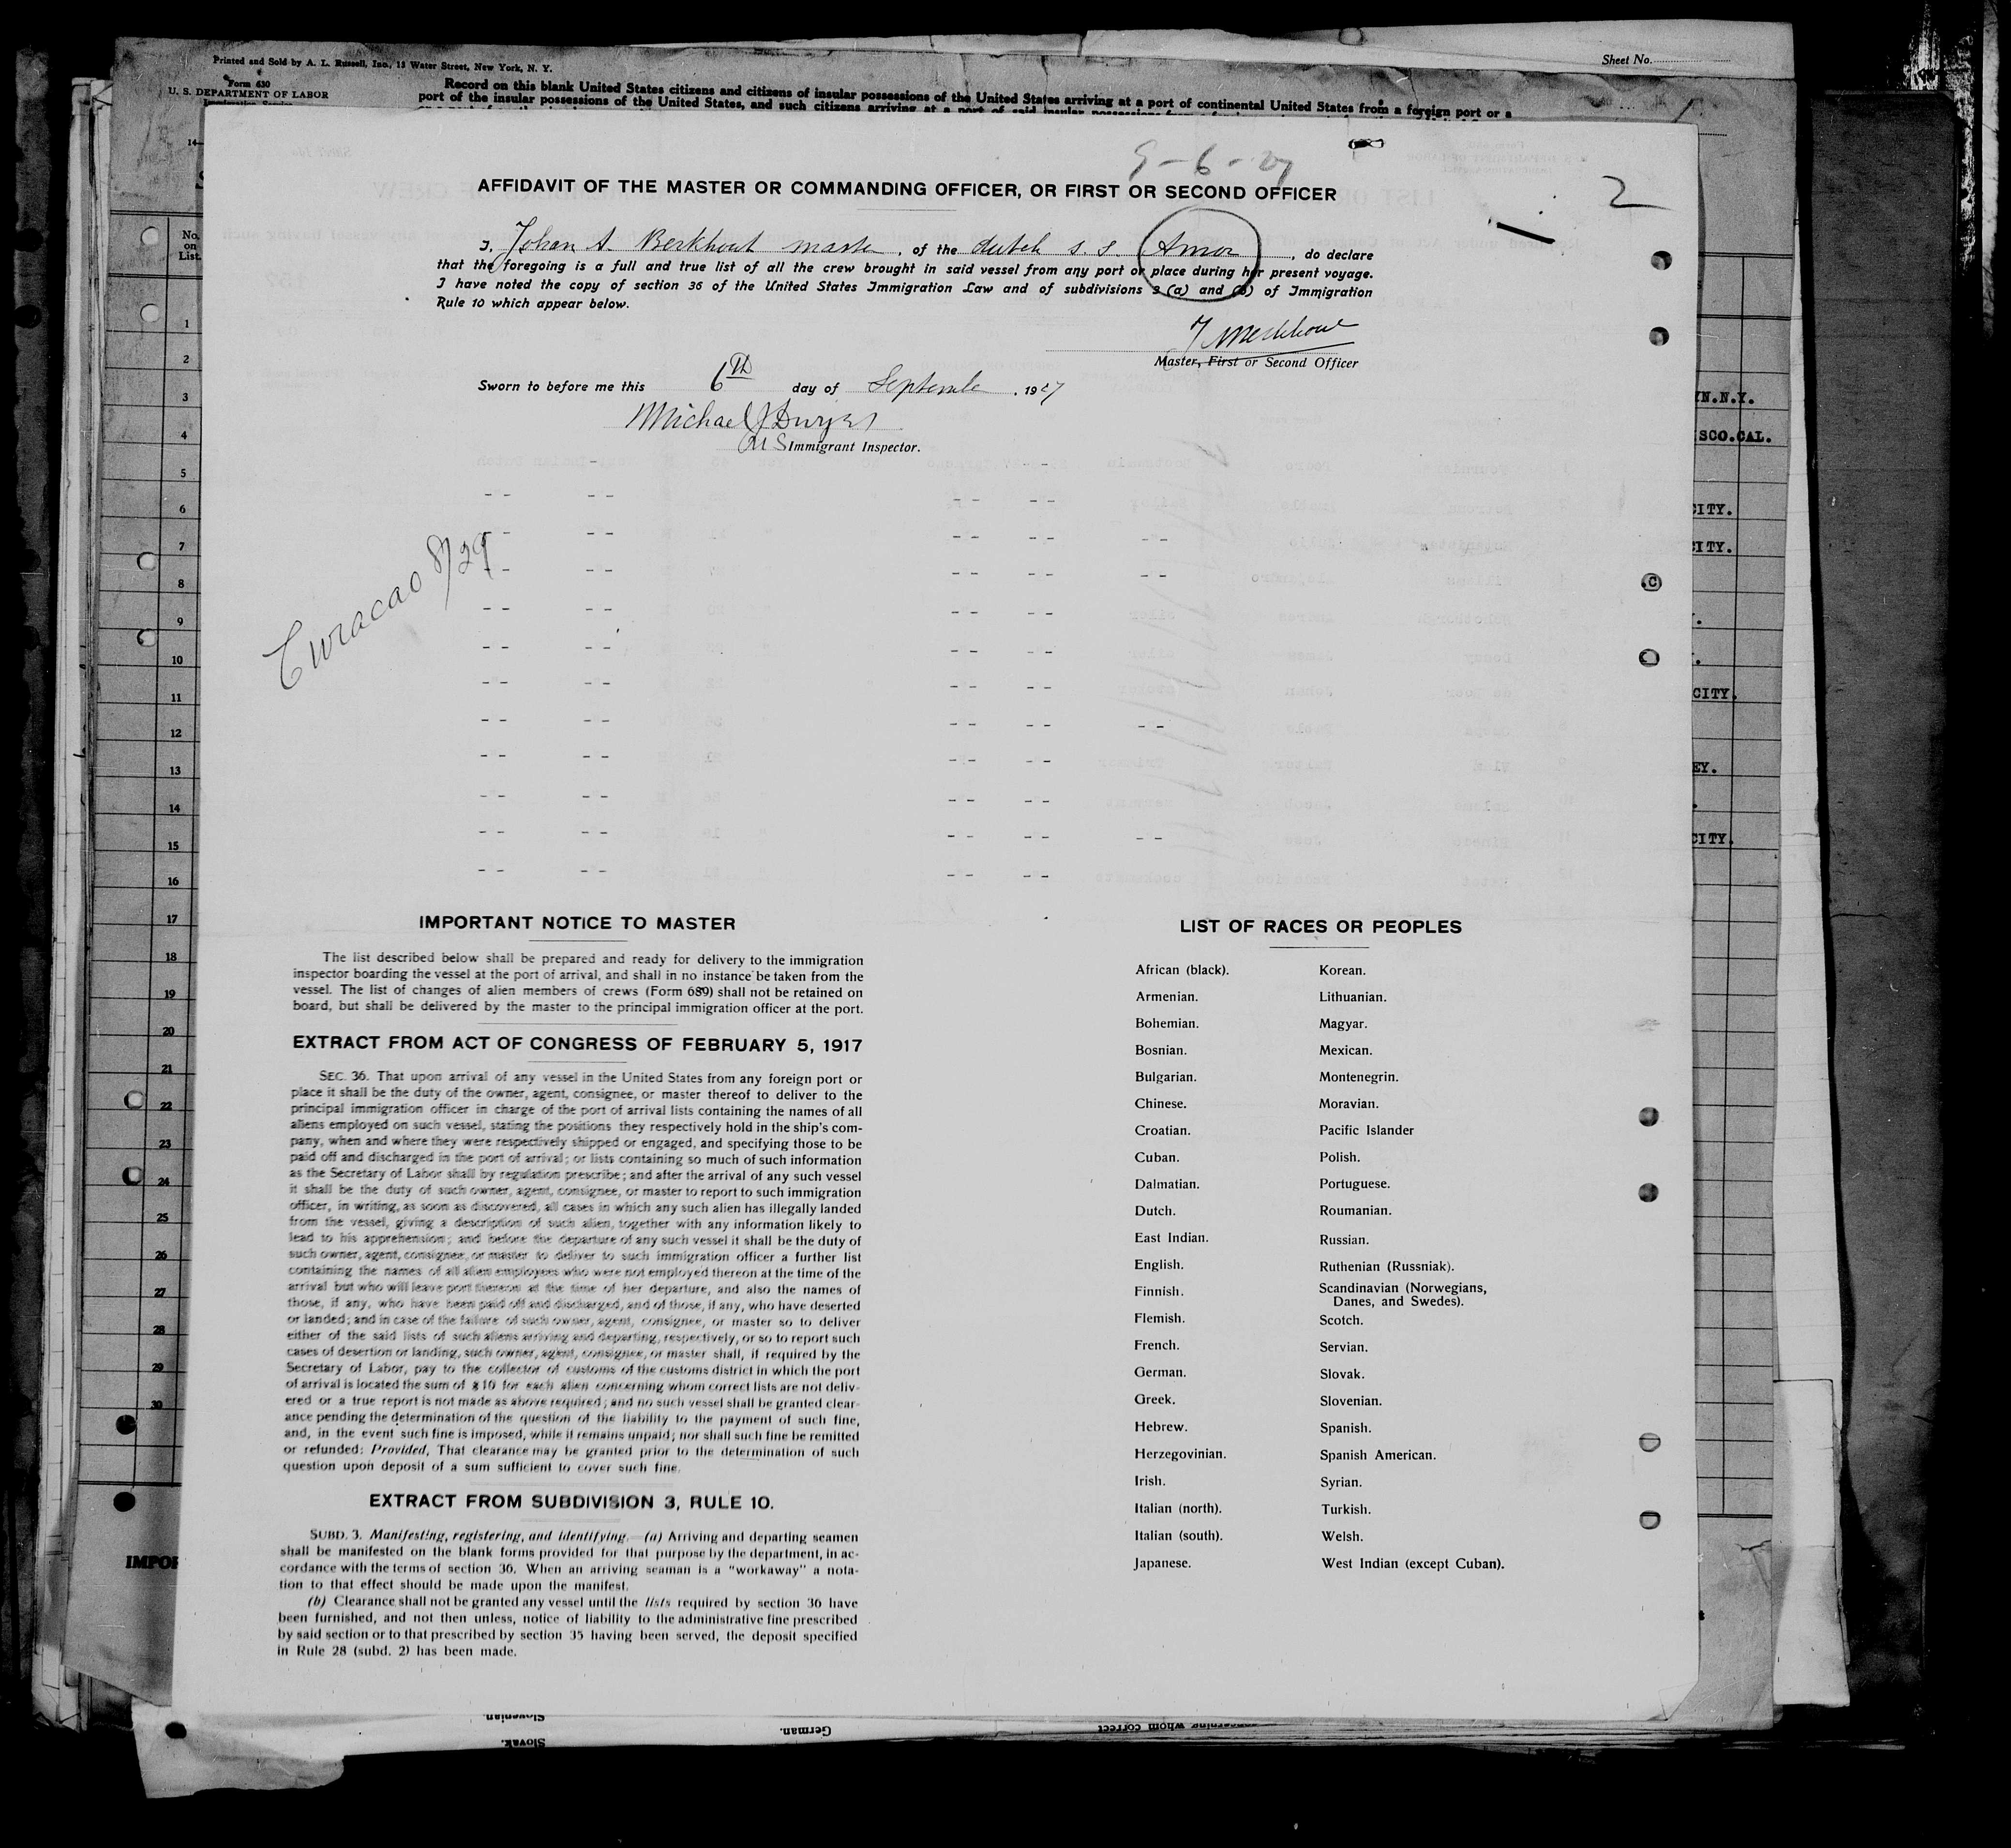 Printed and Sold by A. L. Russell, Inc., 13 Water Street, New York, N. Y.
Sheet No.
Form 630
U. S. DEPARTMENT OF LABOR
Immigration Service
Record on this blank United States citizens and citizens of insular possessions of the United States arriving at a port of continental United States from a foreign port or a
port of the insular possessions of the United States, and such citizens arriving at a port of said insular possessions from a foreign
9-6-27
2
AFFIDAVIT OF THE MASTER OR COMMANDING OFFICER, OR FIRST OR SECOND OFFICER
I, Johan A. Berkhout master, of the dutch s.s. Amor, do declare
that the foregoing is a full and true list of all the crew brought in said vessel from any port or place during her present voyage.
I have noted the copy of section 36 of the United States Immigration Law and of subdivisions 3 (a) and (b) of Immigration
Rule 10 which appear below.
Master, First or Second Officer
Sworn to before me this 6th day of September, 1927
Michael J Dwyer
U S Immigrant Inspector.
Curacao 8/29
No.
on
List.
1
2
3
4
5
6
7
8
9
10
11
12
13
14
15
16
17
18
19
20
21
22
23
24
25
26
27
28
29
30
YN.N.Y.
SCO.CAL.
CITY.
CITY.
CITY.
EY.
CITY.
IMPORTANT NOTICE TO MASTER
The list described below shall be prepared and ready for delivery to the immigration
inspector boarding the vessel at the port of arrival, and shall in no instance be taken from the
vessel. The list of changes of alien members of crews (Form 689) shall not be retained on
board, but shall be delivered by the master to the principal immigration officer at the port.
EXTRACT FROM ACT OF CONGRESS OF FEBRUARY 5, 1917
SEC. 36. That upon arrival of any vessel in the United States from any foreign port or
place it shall be the duty of the owner, agent, consignee, or master thereof to deliver to the
principal immigration officer in charge of the port of arrival lists containing the names of all
aliens employed on such vessel, stating the positions they respectively hold in the ship's com-
pany, when and where they were respectively shipped or engaged, and specifying those to be
paid off and discharged in the port of arrival; or lists containing so much of such information
as the Secretary of Labor shall by regulation prescribe; and after the arrival of any such vessel
it shall be the duty of such owner, agent, consignee, or master to report to such immigration
officer, in writing, as soon as discovered, all cases in which any such alien has illegally landed
from the vessel, giving a description of such alien, together with any information likely to
lead to his apprehension; and before the departure of any such vessel it shall be the duty of
such owner, agent, consignee, or master to deliver to such immigration officer a further list
containing the names of all alien employees who were not employed thereon at the time of the
arrival but who will leave port thereon at the time of her departure, and also the names of
those, if any, who have been paid off and discharged, and of those, if any, who have deserted
or landed; and in case of the failure of such owner, agent, consignee, or master so to deliver
either of the said lists of such aliens arriving and departing, respectively, or so to report such
cases of desertion or landing, such owner, agent, consignee, or master shall, if required by the
Secretary of Labor, pay to the collector of customs of the customs district in which the port
of arrival is located the sum of $10 for each alien concerning whom correct lists are not deliv-
ered or a true report is not made as above required; and no such vessel shall be granted clear-
ance pending the determination of the question of the liability to the payment of such fine,
and, in the event such fine is imposed, while it remains unpaid; nor shall such fine be remitted
or refunded: Provided, That clearance may be granted prior to the determination of such
question upon deposit of a sum sufficient to cover such fine.
EXTRACT FROM SUBDIVISION 3, RULE 10.
SUBD. 3. Manifesting, registering, and identifying.—(a) Arriving and departing seamen
shall be manifested on the blank forms provided for that purpose by the department, in ac-
cordance with the terms of section 36. When an arriving seaman is a "workaway" a nota-
tion to that effect should be made upon the manifest.
(b) Clearance shall not be granted any vessel until the lists required by section 36 have
been furnished, and not then unless, notice of liability to the administrative fine prescribed
by said section or to that prescribed by section 35 having been served, the deposit specified
in Rule 28 (subd. 2) has been made.
LIST OF RACES OR PEOPLES
African (black).
Armenian.
Bohemian.
Bosnian.
Bulgarian.
Chinese.
Croatian.
Cuban.
Dalmatian.
Dutch.
East Indian.
English.
Finnish.
Flemish.
French.
German.
Greek.
Hebrew.
Herzegovinian.
Irish.
Italian (north).
Italian (south).
Japanese.
Korean.
Lithuanian.
Magyar.
Mexican.
Montenegrin.
Moravian.
Pacific Islander
Polish.
Portuguese.
Roumanian.
Russian.
Ruthenian (Russniak).
Scandinavian (Norwegians,
Danes, and Swedes).
Scotch.
Servian.
Slovak.
Slovenian.
Spanish.
Spanish American.
Syrian.
Turkish.
Welsh.
West Indian (except Cuban).
IMPOR
Slovenian.
German.
concerning whom correct
Slovak.